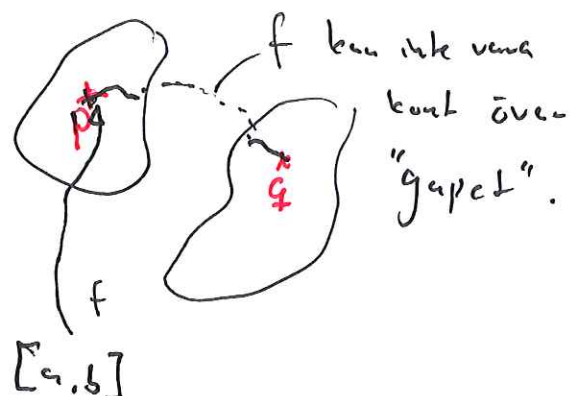 f kan inte vara
kont över
"gapet".
p
q
f
[a,b]